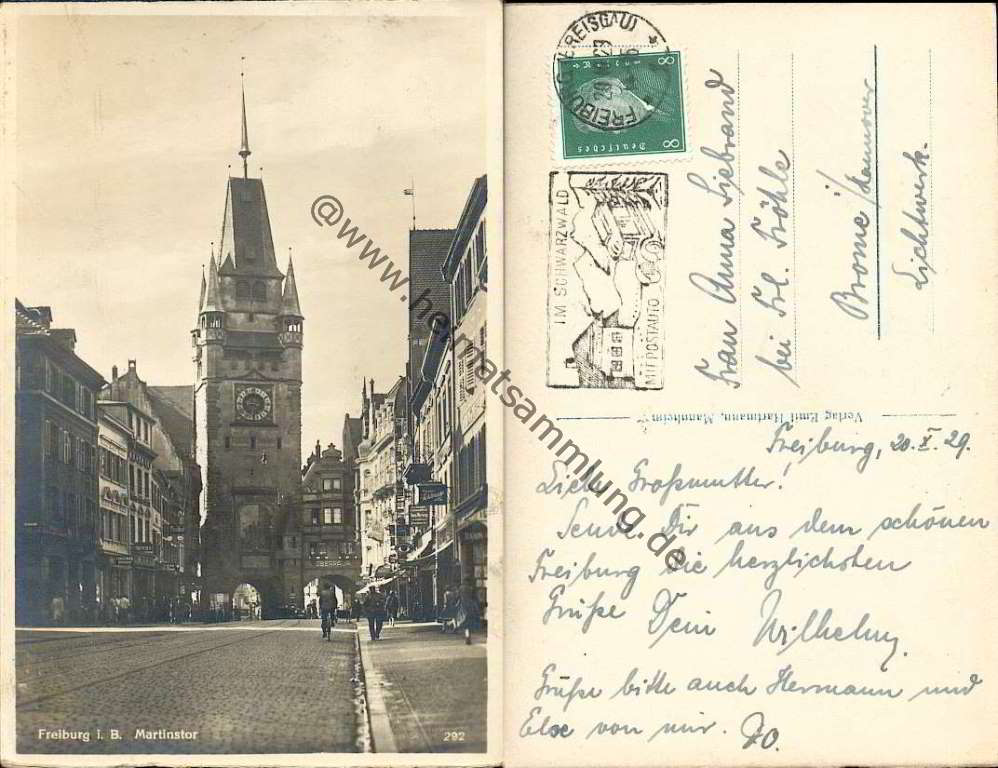 Freiburg i. B. Martinstor
292
@www.heimatsammlung.de
FREIBURG (BREISGAU)
8 8
Deutsches
IM SCHWARZWALD
MIT POSTAUTO
Frau Anna Siebrand
bei Frl. Fröhle
Brome/Hannover
Lichtwerk.
Verlag Emil Hartmann, Mannheim
Freiburg, 20. X. 29.
Liebe Großmutter!
Sende Dir aus dem schönen
Freiburg die herzlichsten
Grüße Dein Wilhelm.
Grüße bitte auch Hermann und
Else von mir. DO.